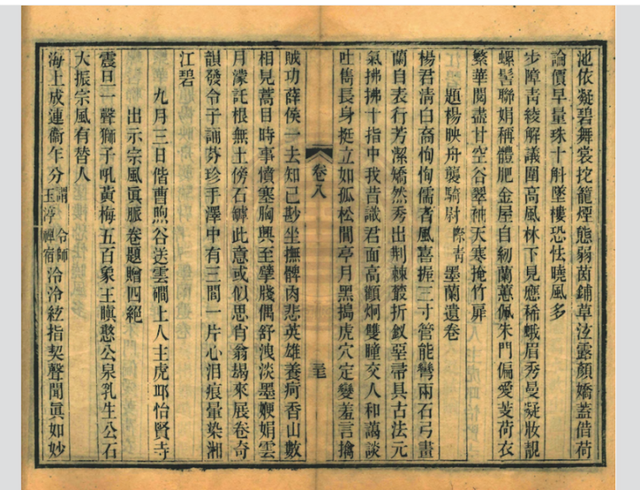 池依凝碧舞裳挖籠煙態弱茵鋪草泫露顏嬌蓋借荷
論價早量珠十斛墜樓恐怯曉風多
步障靑綾解議圍高風林下見應稀蛾眉秀曼凝妝靚
螺髻聯娟稱體肥金屋自紉蘭蕙佩朱門偏愛芰荷衣
繁華閱盡甘空谷翠袖天寒掩竹扉
題楊映舟襲騎尉際靑墨蘭遺卷
楊君淸白裔恂恂儒者風喜振三寸管能彎兩石弓畫
蘭自表行芳潔矯然秀出荆棘叢折釵䍐帚具古法元
氣拂拂十指中我昔識君面高顴炯雙瞳交人和藹談
吐雋長身挺立如孤松閒亭月黑搗虎穴定變羞言擒
賊功薛侯一去知己尠坐撫髀肉悲英雄養疴香山數
相見蒿目時事憤塞胸興至擘牋偶舒洩淡墨鞭娟雲
月濛託根無土傍石罅此意或似思肖翁揚來展卷奇
韻發令子誦芬珍手澤中有三閭一片心泪痕暈染湘
江碧
九月三日偕曹煦谷送雲礀上人主虎邱怡賢寺
出示宗風眞脈卷題贈四絕
震旦一聲獅子吼黃梅五百象王瞋憨公泉乳生公石
大振宗風有替人
海上成連衞年分謂令師玉渟禪宿泠泠絃指契聲聞眞如妙
卷八